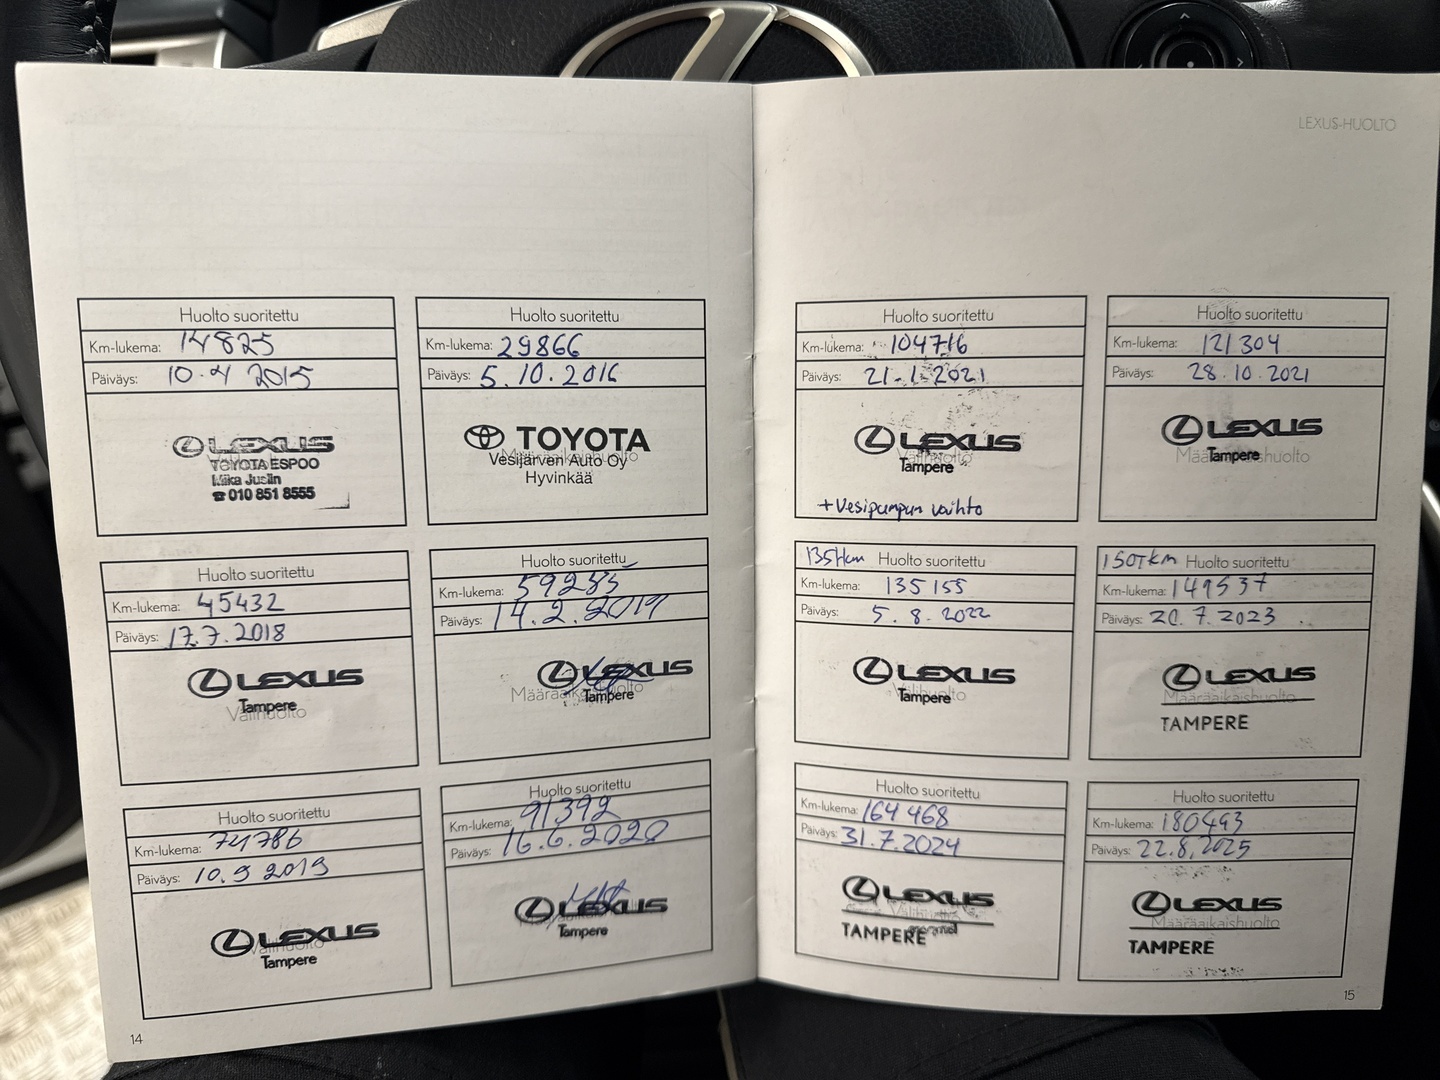 LEXUS-HUOLTO
Huolto suoritettu
Km-lukema: 14825
Päiväys: 10.4 2015
LEXUS
TOYOTA ESPOO
Mika Juslin
☎ 010 851 8555
Huolto suoritettu
Km-lukema: 29866
Päiväys: 5.10.2016
TOYOTA
Määräaikaishuolto
Vesijärven Auto Oy
Hyvinkää
Huolto suoritettu
Km-lukema: 45432
Päiväys: 17.7.2018
LEXUS
Tampere
Välihuolto
Huolto suoritettu
Km-lukema:
Päiväys: 14.2.2019
LEXUS
Määräaikaishuolto
Tampere
Huolto suoritettu
Km-lukema: 74786
Päiväys: 10.9 2019
LEXUS
Välihuolto
Tampere
Huolto suoritettu
Km-lukema: 91392
Päiväys: 16.6.2020
LEXUS
Tampere
14
Huolto suoritettu
Km-lukema: 104716
Päiväys: 21.1.2021
LEXUS
Välihuolto
Tampere
+Vesipumpun vaihto
Huolto suoritettu
Km-lukema: 121 304
Päiväys: 28.10.2021
LEXUS
Määräaikaishuolto
Tampere
135tkm Huolto suoritettu
Km-lukema: 135 155
Päiväys: 5.8.2022
LEXUS
Välihuolto
Tampere
150Tkm Huolto suoritettu
Km-lukema: 149537
Päiväys: 20.7.2023
LEXUS
Määräaikaishuolto
TAMPERE
Huolto suoritettu
Km-lukema: 164 468
Päiväys: 31.7.2024
LEXUS
Välihuolto
TAMPERE
Huolto suoritettu
Km-lukema: 180493
Päiväys: 22.8.2025
LEXUS
Määräaikaishuolto
TAMPERE
15